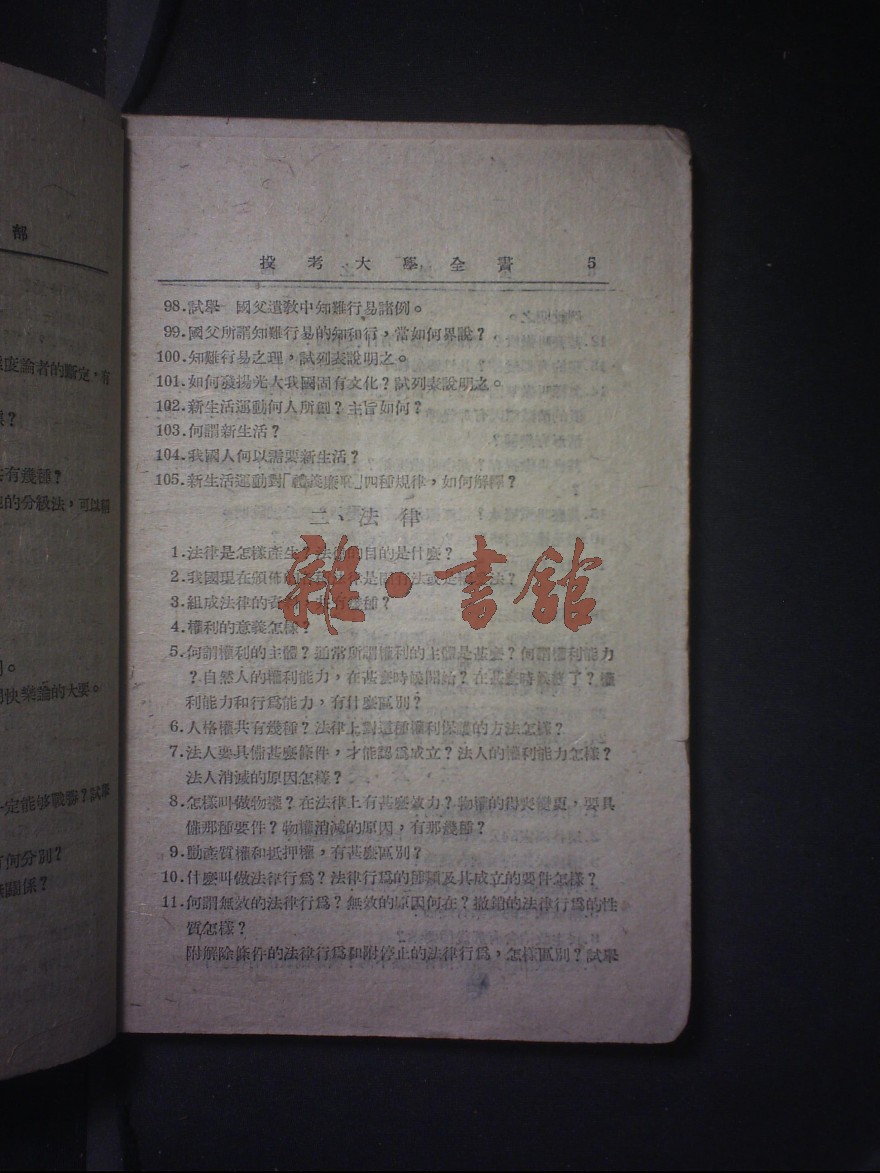 部
度論者的斷定,有
?
有幾種?
的分級法,可以
。
快樂論的大要。
一定能够戰勝?試舉
何分別?
關係?
投考大學全書 5
98.試舉 國父遺教中知難行易諸例。
99.國父所謂知難行易的知和行,當如何界說?
100.知難行易之理,試列表說明之。
101.如何發揚光大我國固有文化?試列表說明之。
102.新生活運動何人所創?主旨如何?
103.何謂新生活?
104.我國人何以需要新生活?
105.新生活運動對「禮義廉恥」四種規律,如何解釋?
二、法律
1.法律是怎樣產生?法律的目的是什麼?
2.我國現在頒佈的 法律是固有法或是 法?
3.組成法律的資料,共有幾種?
4.權利的意義怎樣?
5.何謂權利的主體?通常所謂權利的主體是甚麼?何謂權利能力
?自然人的權利能力,在甚麼時候開始?在甚麼時候終了?權
利能力和行爲能力,有什麼區別?
6.人格權共有幾種?法律上對這種權利保護的方法怎樣?
7.法人要具備甚麼條件,才能認爲成立?法人的權利能力怎樣?
法人消滅的原因怎樣?
8.怎樣叫做物權?在法律上有甚麼效力?物權的得喪變更,要具
備那種要件?物權消滅的原因,有那幾種?
9.動產質權和抵押權,有甚麼區別?
10.什麼叫做法律行爲?法律行爲的種類及其成立的要件怎樣?
11.何謂無效的法律行爲?無效的原因何在?撤銷的法律行爲的性
質怎樣?
附解除條件的法律行爲和附停止的法律行爲,怎樣區別?試舉
雜·書館